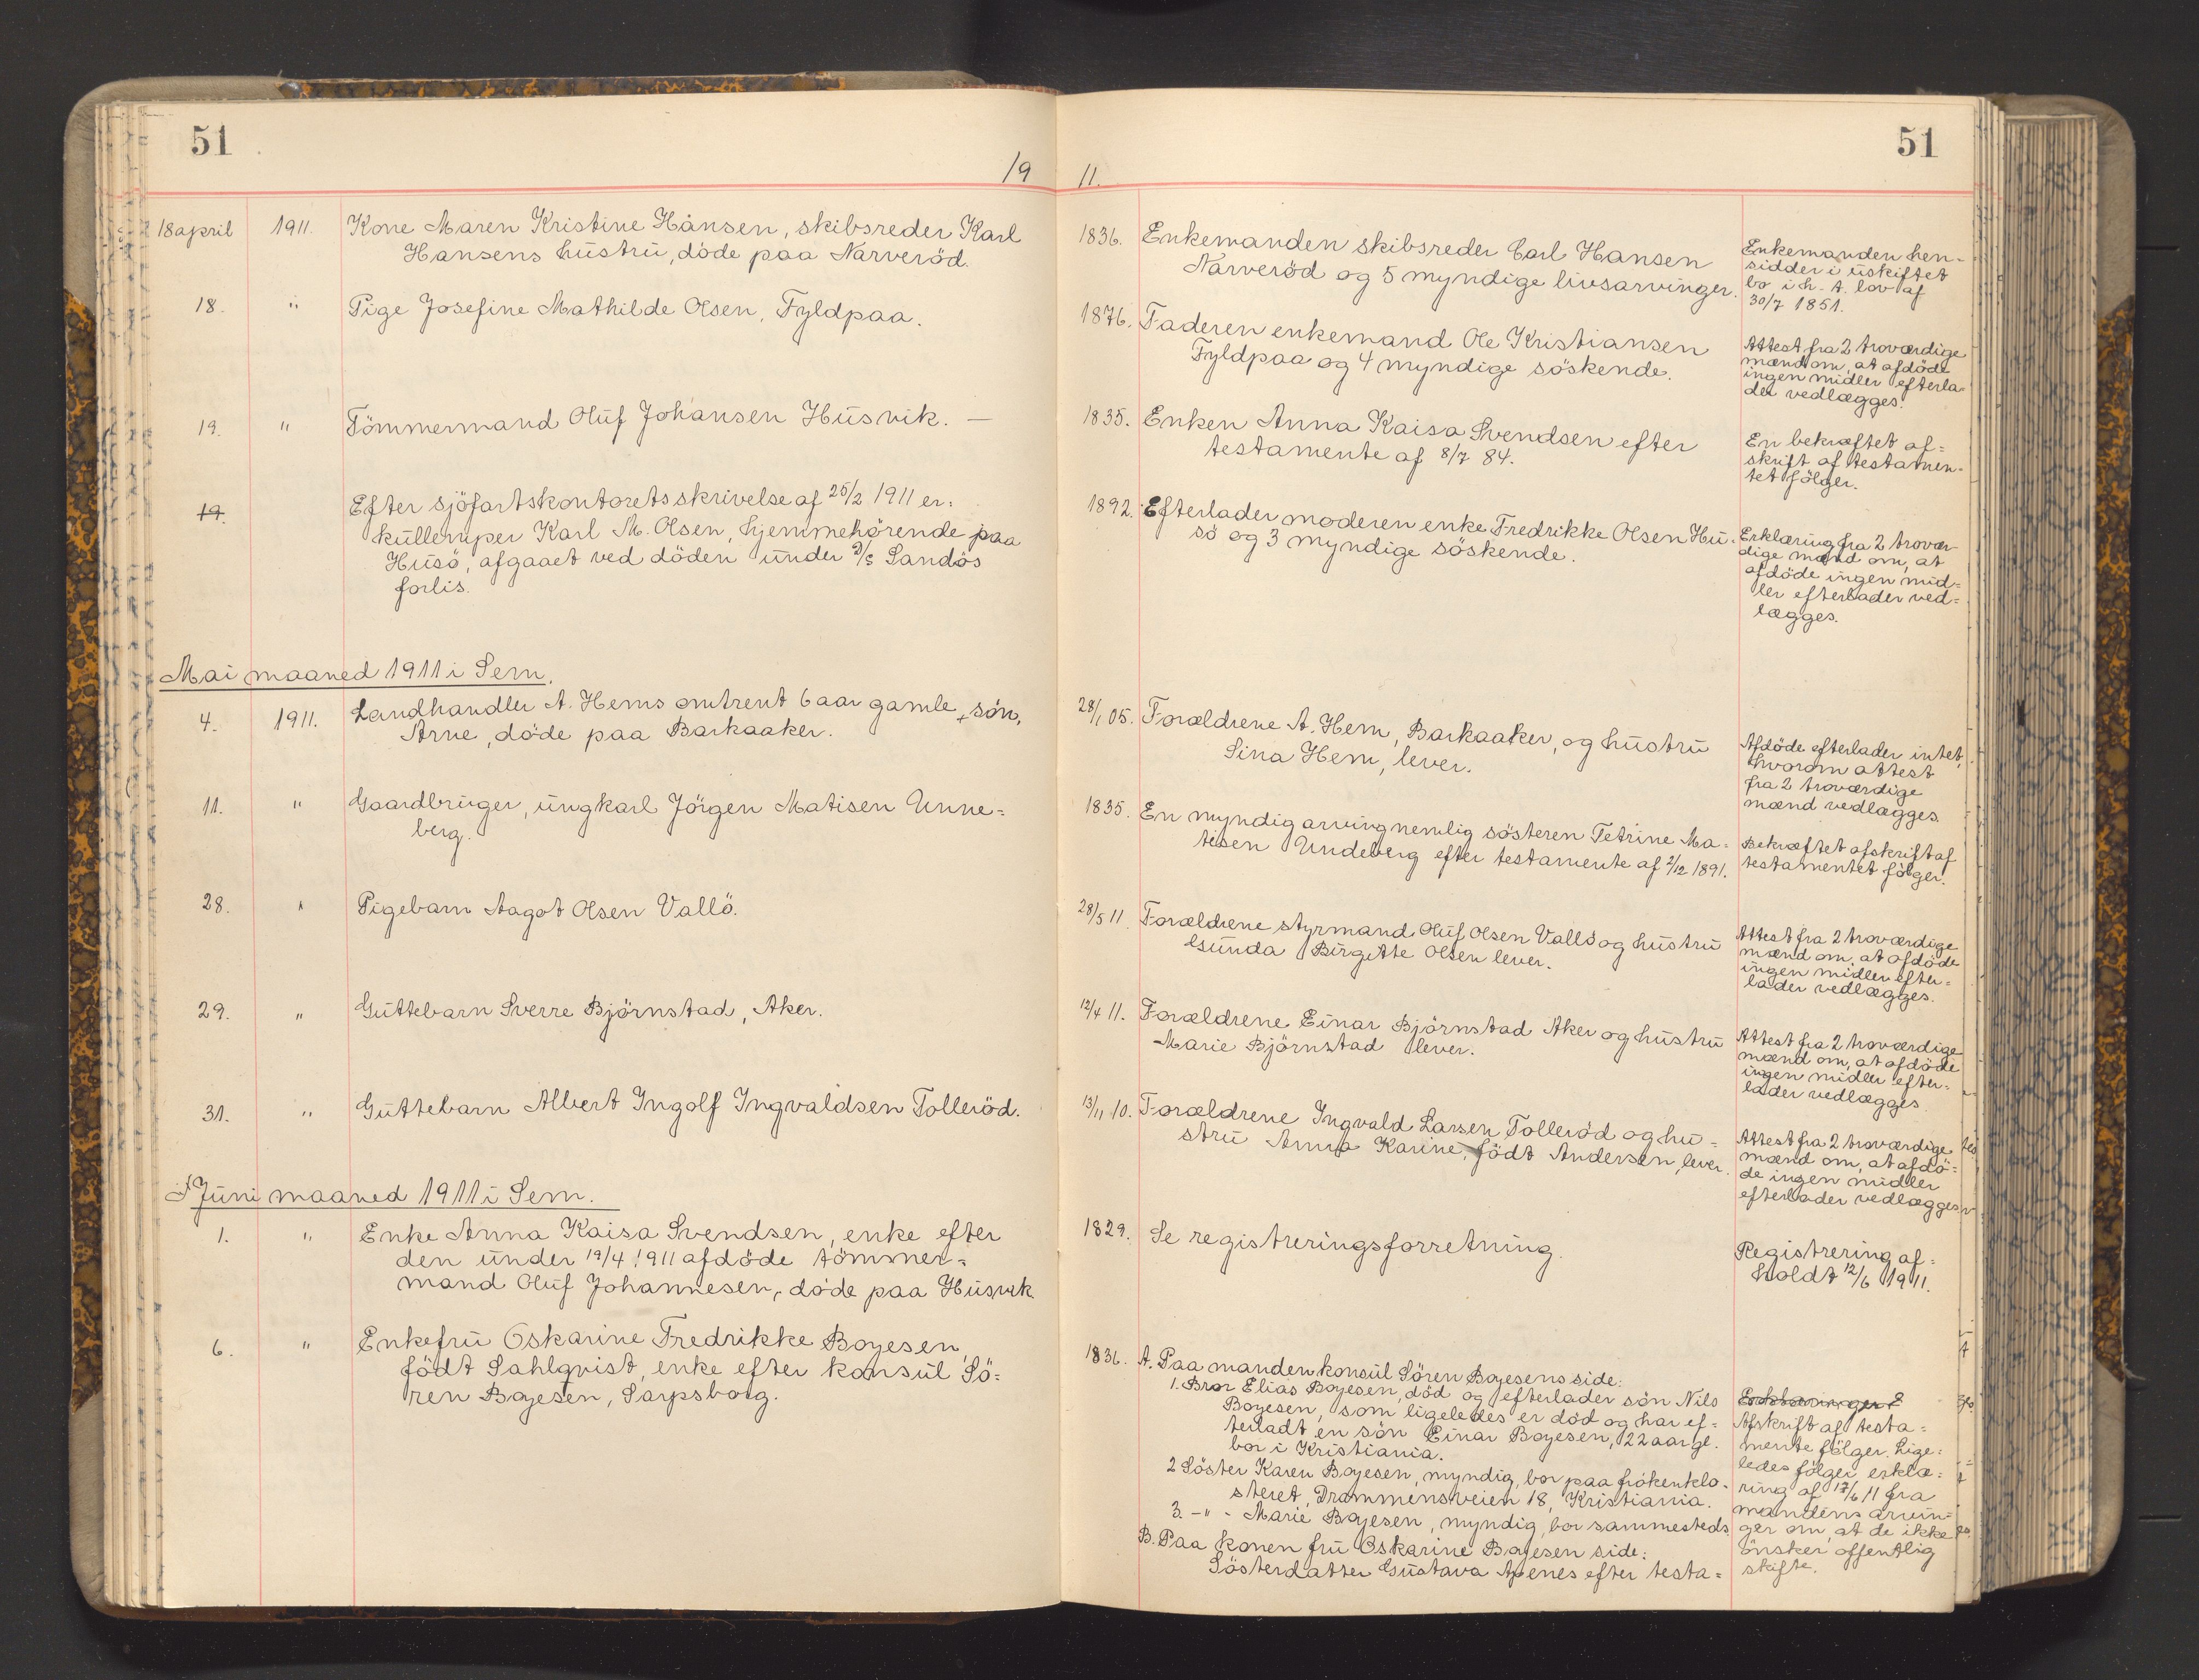 51
51
19 11.
18 april 1911. Kone Maren Kristine Hansen, skibsreder Karl
Hansens hustru, döde paa Narveröd.
1836. Enkemanden skibsreder Carl Hansen
Narveröd og 5 myndige livsarvinger.
Enkemanden hen-
sidder i uskiftet
bo i h. t. lov af
30/7 1851.
18. " Pige Josefine Mathilde Olsen, Fyldpaa.
1876. Faderen enkemand Ole Kristiansen
Fyldpaa og 4 myndige söskende.
Attest fra 2 troværdige
mænd om, at afdöde
ingen midler efterla-
der vedlægges.
19. " Tömmermand Oluf Johansen Husvik. —
1835. Enken Anna Kaisa Svendsen efter
testamente af 8/7 84.
En bekræftet af=
skrift af testamen-
tet fölger.
19. Efter sjöfartskontorets skrivelse af 25/2 1911 er:
kullemper Karl M. Olsen, hjemmehörende paa
Husö, afgaaet ved döden under D/S Sandös
forlis.
1892. Efterlader moderen enke Fredrikke Olsen Hu-
sö og 3 myndige söskende.
Erklæring fra 2 trovær-
dige mænd om, at
afdöde ingen mid=
ler efterlader ved=
lægges.
Mai maaned 1911 i Sem.
4. 1911. Landhandler A. Hems omtrent 6 aar gamle sön,
Arne, döde paa Barkaaker.
28/1 05. Forældrene A. Hem, Barkaaker, og hustru
Sina Hem, lever.
Afdöde efterlader intet,
hvorom attest
fra 2 troværdige
mænd vedlægges.
11. " Gaardbruger, ungkarl Jörgen Matisen Unne=
berg.
1835. En myndig arving nemlig sösteren Tetrine Ma=
tisen Undeberg efter testamente af 2/12 1891.
Bekræftet afskrift af
testamentet fölger.
28. " Pigebarn Aagot Olsen Vallö.
28/5 11. Forældrene styrmand Oluf Olsen Vallö og hustru
Gunda Birgitte Olsen lever.
Attest fra 2 troværdige
mænd om, at afdöde
ingen midler efter=
lader vedlægges.
29. " Guttebarn Sverre Björnstad, Aker.
12/4 11. Forældrene Einar Björnstad Aker og hustru
Marie Björnstad lever.
Attest fra 2 troværdige
mænd om, at afdöde
ingen midler efter=
lader vedlægges.
31. " Guttebarn Albert Ingolf Ingvaldsen Tolleröd.
13/11 10. Forældrene Ingvald Larsen Tolleröd og hu=
stru Anna Karine, födt Andersen, lever.
Attest fra 2 troværdige
mænd om, at afdö=
de ingen midler
efterlader vedlægges
Juni maaned 1911 i Sem.
1. " Enke Anna Kaisa Svendsen, enke efter
den under 19/4 1911 afdöde tömmer=
mand Oluf Johannesen, döde paa Husvik.
1829. Se registreringsforretning.
Registrering af=
holdt 12/6 1911.
6. " Enkefru Oskarine Fredrikke Boyesen,
födt Sahlqvist, enke efter konsul Sö=
ren Boyesen, Sarpsborg.
1836. A. Paa manden konsul Sören Boyesens side:
1. Bror Elias Boyesen, död og efterlader sön Nils
Boyesen, som ligeledes er död og har ef=
terladt en sön Einar Boyesen, 22 aar gl.
bor i Kristiania.
2 Söster Karen Boyesen, myndig, bor paa frökenklo-
steret, Drammensveien 18, Kristiania.
3. -"- Marie Boyesen, myndig, bor sammesteds.
B. Paa konen fru Oskarine Boyesen side:
Sösterdatter Gustava Apenes efter testa=
Afskrift af testa=
mente fölger. Lige=
ledes fölger erklæ=
ring af 17/6 11 fra
mandens arvin=
ger om, at de ikke
önsker offentlig
skifte.